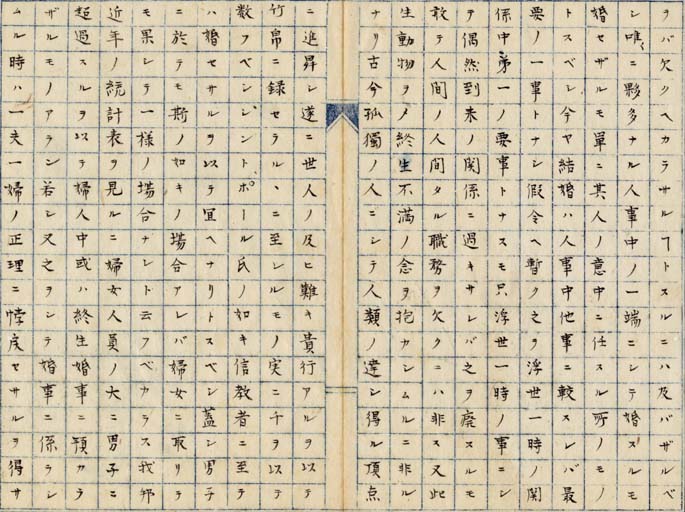 ヲバ欠クヘカラサルヿトスルニハ及バザルベ
シ唯〻夥多ナル人事中ノ一端ニシテ婚スルモ
婚セザルモ單ニ其人ノ意中ニ任スル所ノモノ
トスベシ今ヤ結婚ハ人事中他事ニ較スレバ最
要ノ一事トナシ假令ヘ暫ク之ヲ浮世一時ノ関
係中第一ノ要事トナスモ只浮世一時ノ事ニシ
テ偶然到来ノ関係ニ過キサレバ之ヲ廃スルモ
敢テ人間ノ人間タル職務ヲ欠クニハ非ス又此
生動物ヲメ終生不満ノ念ヲ抱カシムルニ非ル
ナリ古今孤獨ノ人ニシテ人類ノ達シ得ル頂点
ニ進昇シ遂ニ世人ノ及ヒ難キ貴行アルヲ以テ
竹帛ニ録セラルヽニ至シルモノ実ニ千ヲ以テ
数フベシシントポール氏ノ如キ信教者ニ至テ
ハ婚セサルヲ以テ冝ヘナリトスベシ蓋シ男子
ニ於テモ斯ノ如キノ場合アレバ婦女ニ取リテ
モ果シテ一様ノ場合ナシト云フベカラス我邦
近年ノ統計表ヲ見ルニ婦女人員ノ大ニ男子ニ
超過スルヲ以テ婦人中或ハ終生婚事ニ預カラ
ザルモノアラン若シ又之ヲシテ婚事ニ係ラシ
ムル時ハ一夫一婦ノ正理ニ悖戻セサルヲ得サ